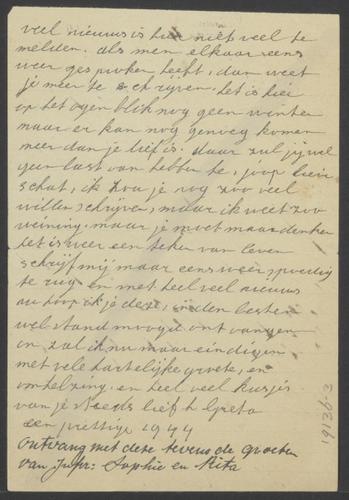 veel nieuws is hier niet veel te
melden. als men elkaar eens
weer gesproken heeft, dan weet
je meer te schrijven. het is hier
op het ogenblik nog geen winter
maar er kan nog genoeg komen
meer dan je lief is. daar zul jij wel
geen last van hebben te, joop lieve
schat, ik zou je nog zoo veel
willen schrijven, maar ik weet zoo
weining, maar je moet maar denken
het is weer een teken van leven
schrijf mij maar eens weer, spoedig
te rug en met heel veel nieuws
nu hoop ik je deze, in den besten
welstand moogd ont vangen
en zal ik nu maar eindigen
met vele hartelijke groete, en
omhelzing, en heel veel kusjes
van je steeds liefh Greta
een prettige 1944
ontvang met deze tevens de groeten
van Jufr: Sophie en Rita
19136-3